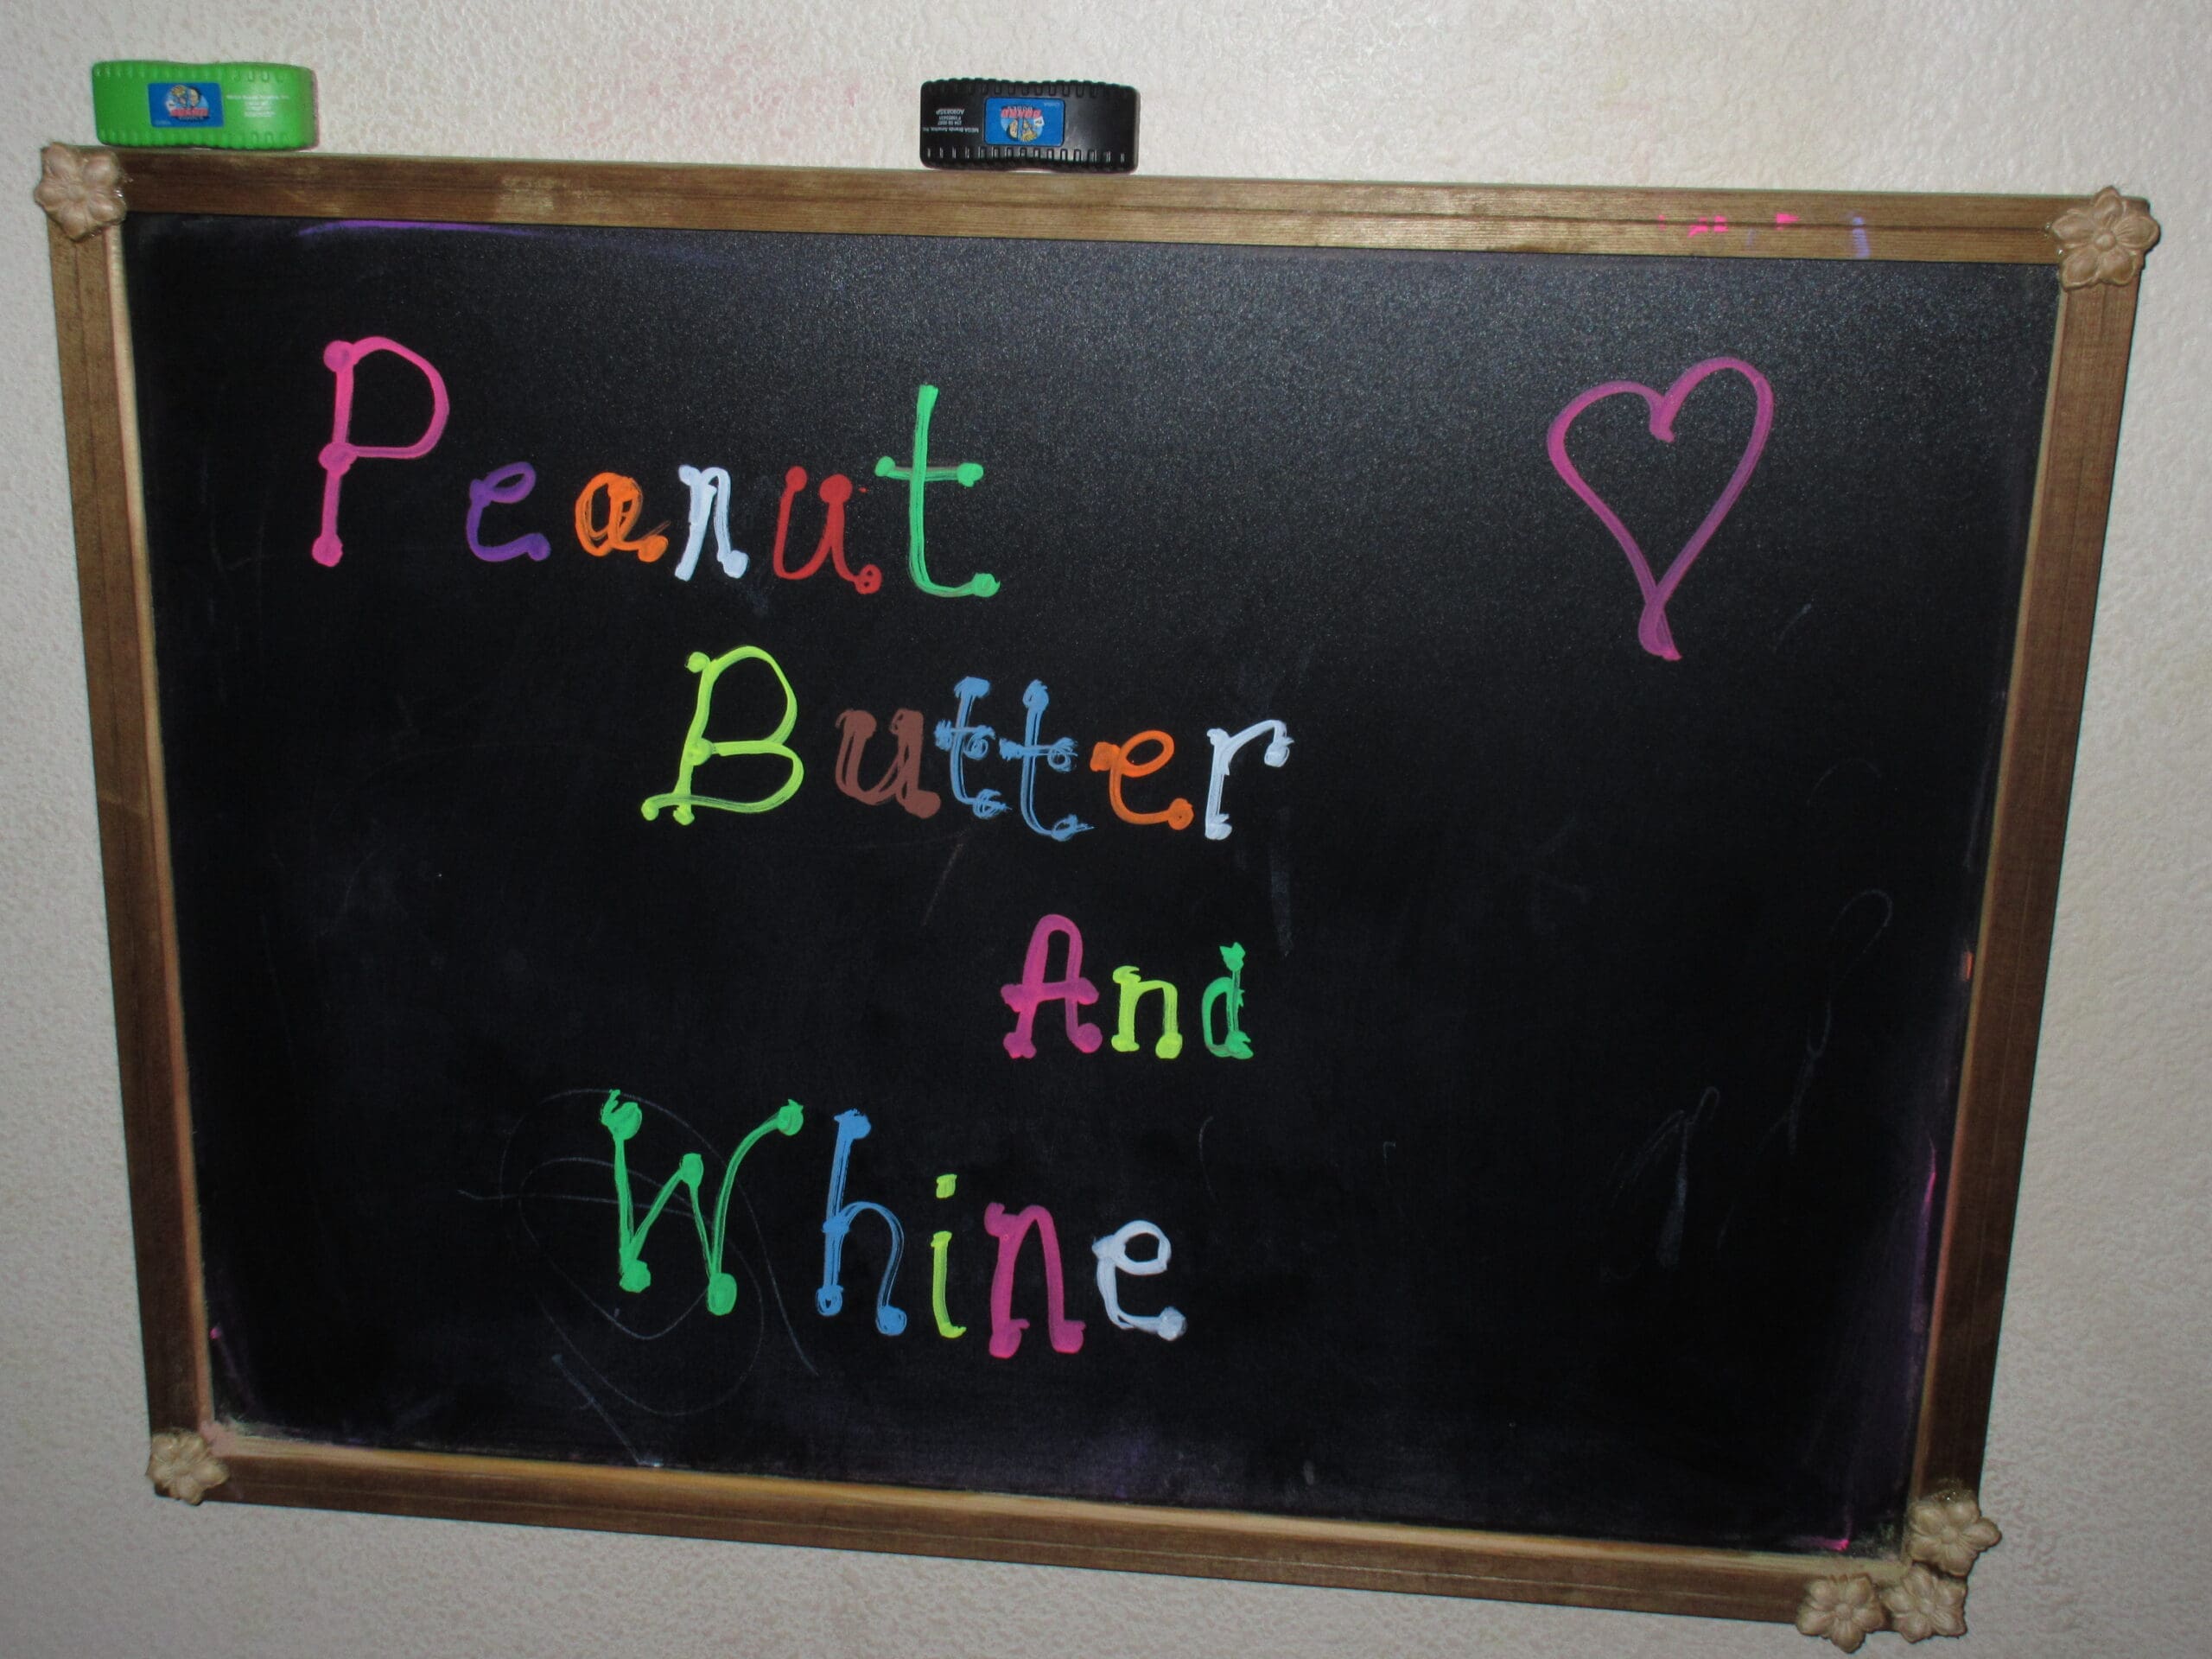 Peanut
Butter
And
Whine